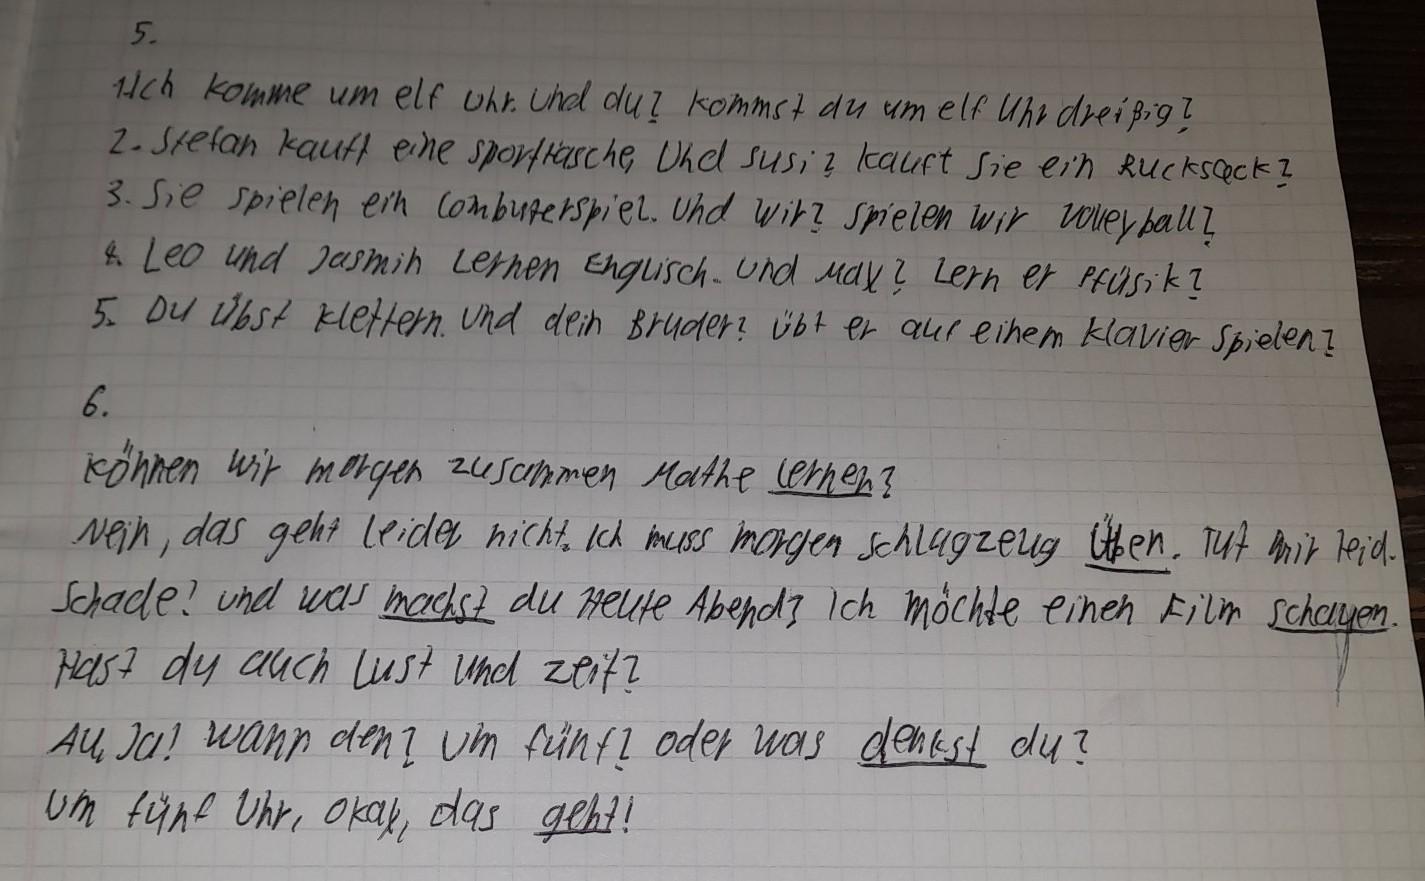 5.
1. Ich komme um elf Uhr. Und du? kommst du um elf Uhr dreißig?
2. Stefan kauft eine sporttasche, Und susi? kauft Sie ein Rucksack?
3. Sie spielen ein Combuterspiel. Und wir? spielen wir volleyball?
4. Leo und Jasmin Lernen Englisch. und Max? Lern er Pfüsik?
5. Du Übst klettern. Und dein Bruder? übt er auf einem klavier spielen?
6.
können wir morgen zusammen Mathe lernen?
Nein, das geht leider nicht. Ich muss morgen schlagzeug Üben. Tut mir leid.
Schade! und was machst du Heute Abend? Ich möchte einen Film schauen.
Hast du auch Lust und zeit?
Au, Ja! wann den? um fünf? oder was denkst du?
um fünf Uhr, okay, das geht!